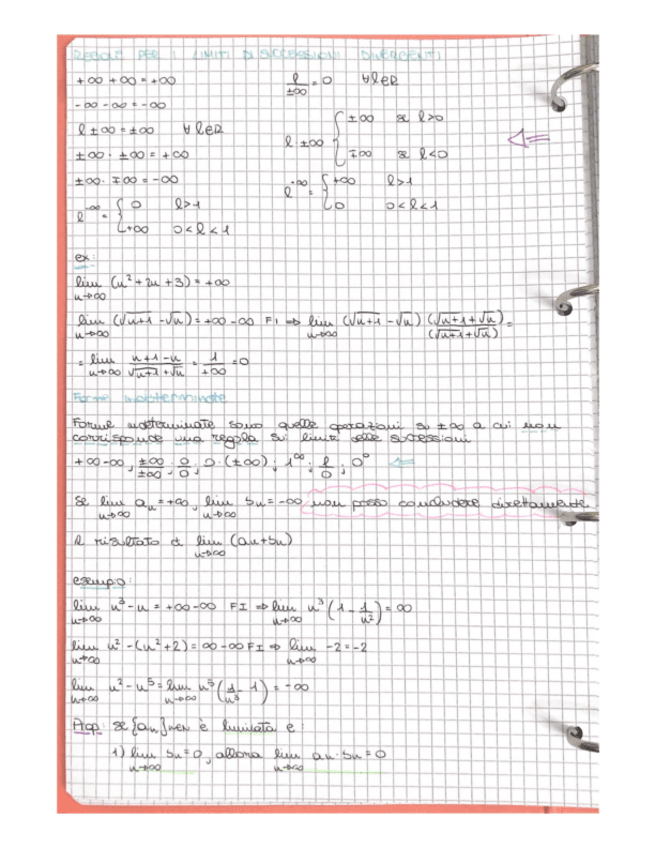 REGOLE PER I LIMITI DI SUCCESSIONI DIVERGENTI
+∞ +∞ = +∞
-∞ -∞ = -∞
l ±∞ = ±∞ ∀ l∈R
±∞ · ±∞ = +∞
±∞ · ∓∞ = -∞
l^-∞ = { 0 l>1
+∞ 0<l<1
l/±∞ = 0 ∀ l∈R
l · ±∞ { ±∞ se l>0
∓∞ se l<0
l^+∞ = { +∞ l>1
0 0<l<1
ex:
lim n→∞ (n² + 2n + 3) = +∞
lim n→∞ (√n+1 - √n) = +∞ -∞ FI ⇒ lim n→∞ (√n+1 - √n) (√n+1 + √n)/(√n+1 + √n) =
= lim n→∞ n+1-n/√n+1 + √n = 1/+∞ = 0
Forme indeterminate
Forme indeterminate sono quelle operazioni su ±∞ a cui non
corrisponde una regola sui limiti delle successioni
+∞ -∞, ±∞/±∞, 0/0, 0·(±∞); 1^∞; l/0; 0⁰
Se lim n→∞ an = +∞, lim n→∞ bn = -∞ non posso concludere direttamente
il risultato di lim n→∞ (an+bn)
esempio:
lim n→∞ n³ - n = +∞ -∞ FI ⇒ lim n→∞ n³ (1 - 1/n²) = ∞
lim n→∞ n² - (n² + 2) = ∞ -∞ FI ⇒ lim n→∞ -2 = -2
lim n→∞ n² - n⁵ = lim n→∞ n⁵ (1/n³ - 1) = -∞
Prop: se {an}n∈N è limitata e:
1) lim n→∞ bn = 0, allora lim n→∞ an · bn = 0